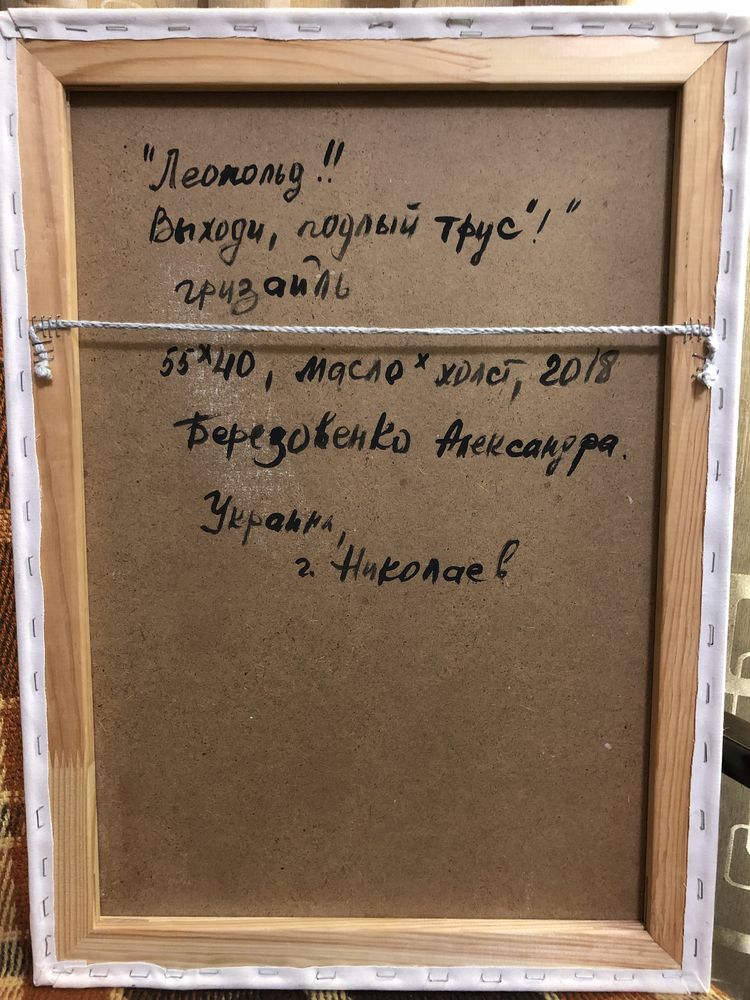 "Леопольд!!
Выходи, подлый трус"!"
гризайль
55х40, масло х холст, 2018
Березовенко Александра.
Украина,
г. Николаев